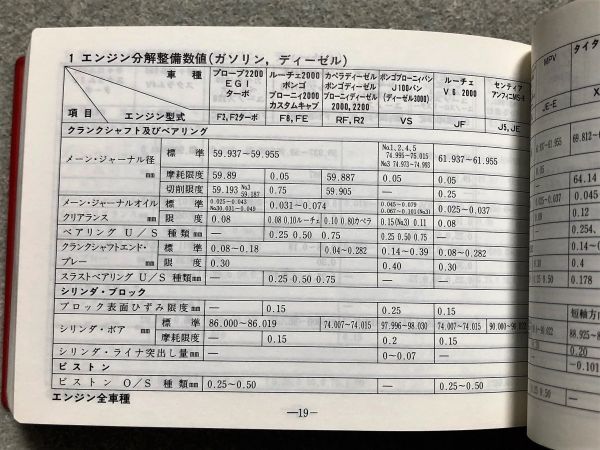 1 エンジン分解整備数値(ガソリン，ディーゼル)
車種 プローブ2200 EGI ターボ ルーチェ2000 ボンゴ ブローニィ2000 カスタムキャブ カペラディーゼル ボンゴディーゼル ブローニィディーゼル 2000,2200 ボンゴブローニィバン J100バン (ディーゼル3000) ルーチェ V6 2000 センティア アンフィニMS-9 MPV タイタ
項目 エンジン型式 F2,F2ターボ F8,FE RF,R2 VS JF J5,JE JE-E X
クランクシャフト及びベアリング
メーン・ジャーナル径 mm 標準 59.937～59.955 №1,2,4,5 74.996～75.015 №3 74.973～74.993 61.937～61.955
摩耗限度 59.89 0.05 59.887 0.05 0.05 64.14
切削限度 59.193 №3 59.187 0.75 59.905 — 0.25
メーン・ジャーナルオイルクリアランス mm 標準 0.025～0.043 №30.031～0.049 0.031～0.074 0.045～0.079 0.067～0.101(№3) 0.025～0.037
限度 0.08 0.08 0.10ルーチェ 0.10 0.80カペラ 0.15(№3) 0.11 0.08 0.12
ベアリング U／S 種類mm — 0.25 0.50 0.75 0.25 0.50 0.75 — 0.254,
クランクシャフトエンド・プレー mm 標準 0.08～0.18 0.04～0.282 0.14～0.39 0.08～0.282 0.14～
限度 0.30 0.40 0.30 0.4
スラストベアリング U／S 種類mm — 0.25 0.50 0.75 — — 0.178
シリンダ・ブロック
ブロック表面ひずみ限度mm — 0.15 0.25 0.15 短軸方向
シリンダ・ボア mm 標準 86.000～86.019 74.007～74.015 97.996～98.030 74.007～74.015 90.000～90.022 88.925～8
摩耗限度 — 0.15 0.2 0.15 0.20
シリンダ・ライナ突出し量mm — — 0～0.07 — -0.101
ピストン
ピストン O／S 種類mm 0.25～0.50 — 0.25～0.50
エンジン全車種
—19—